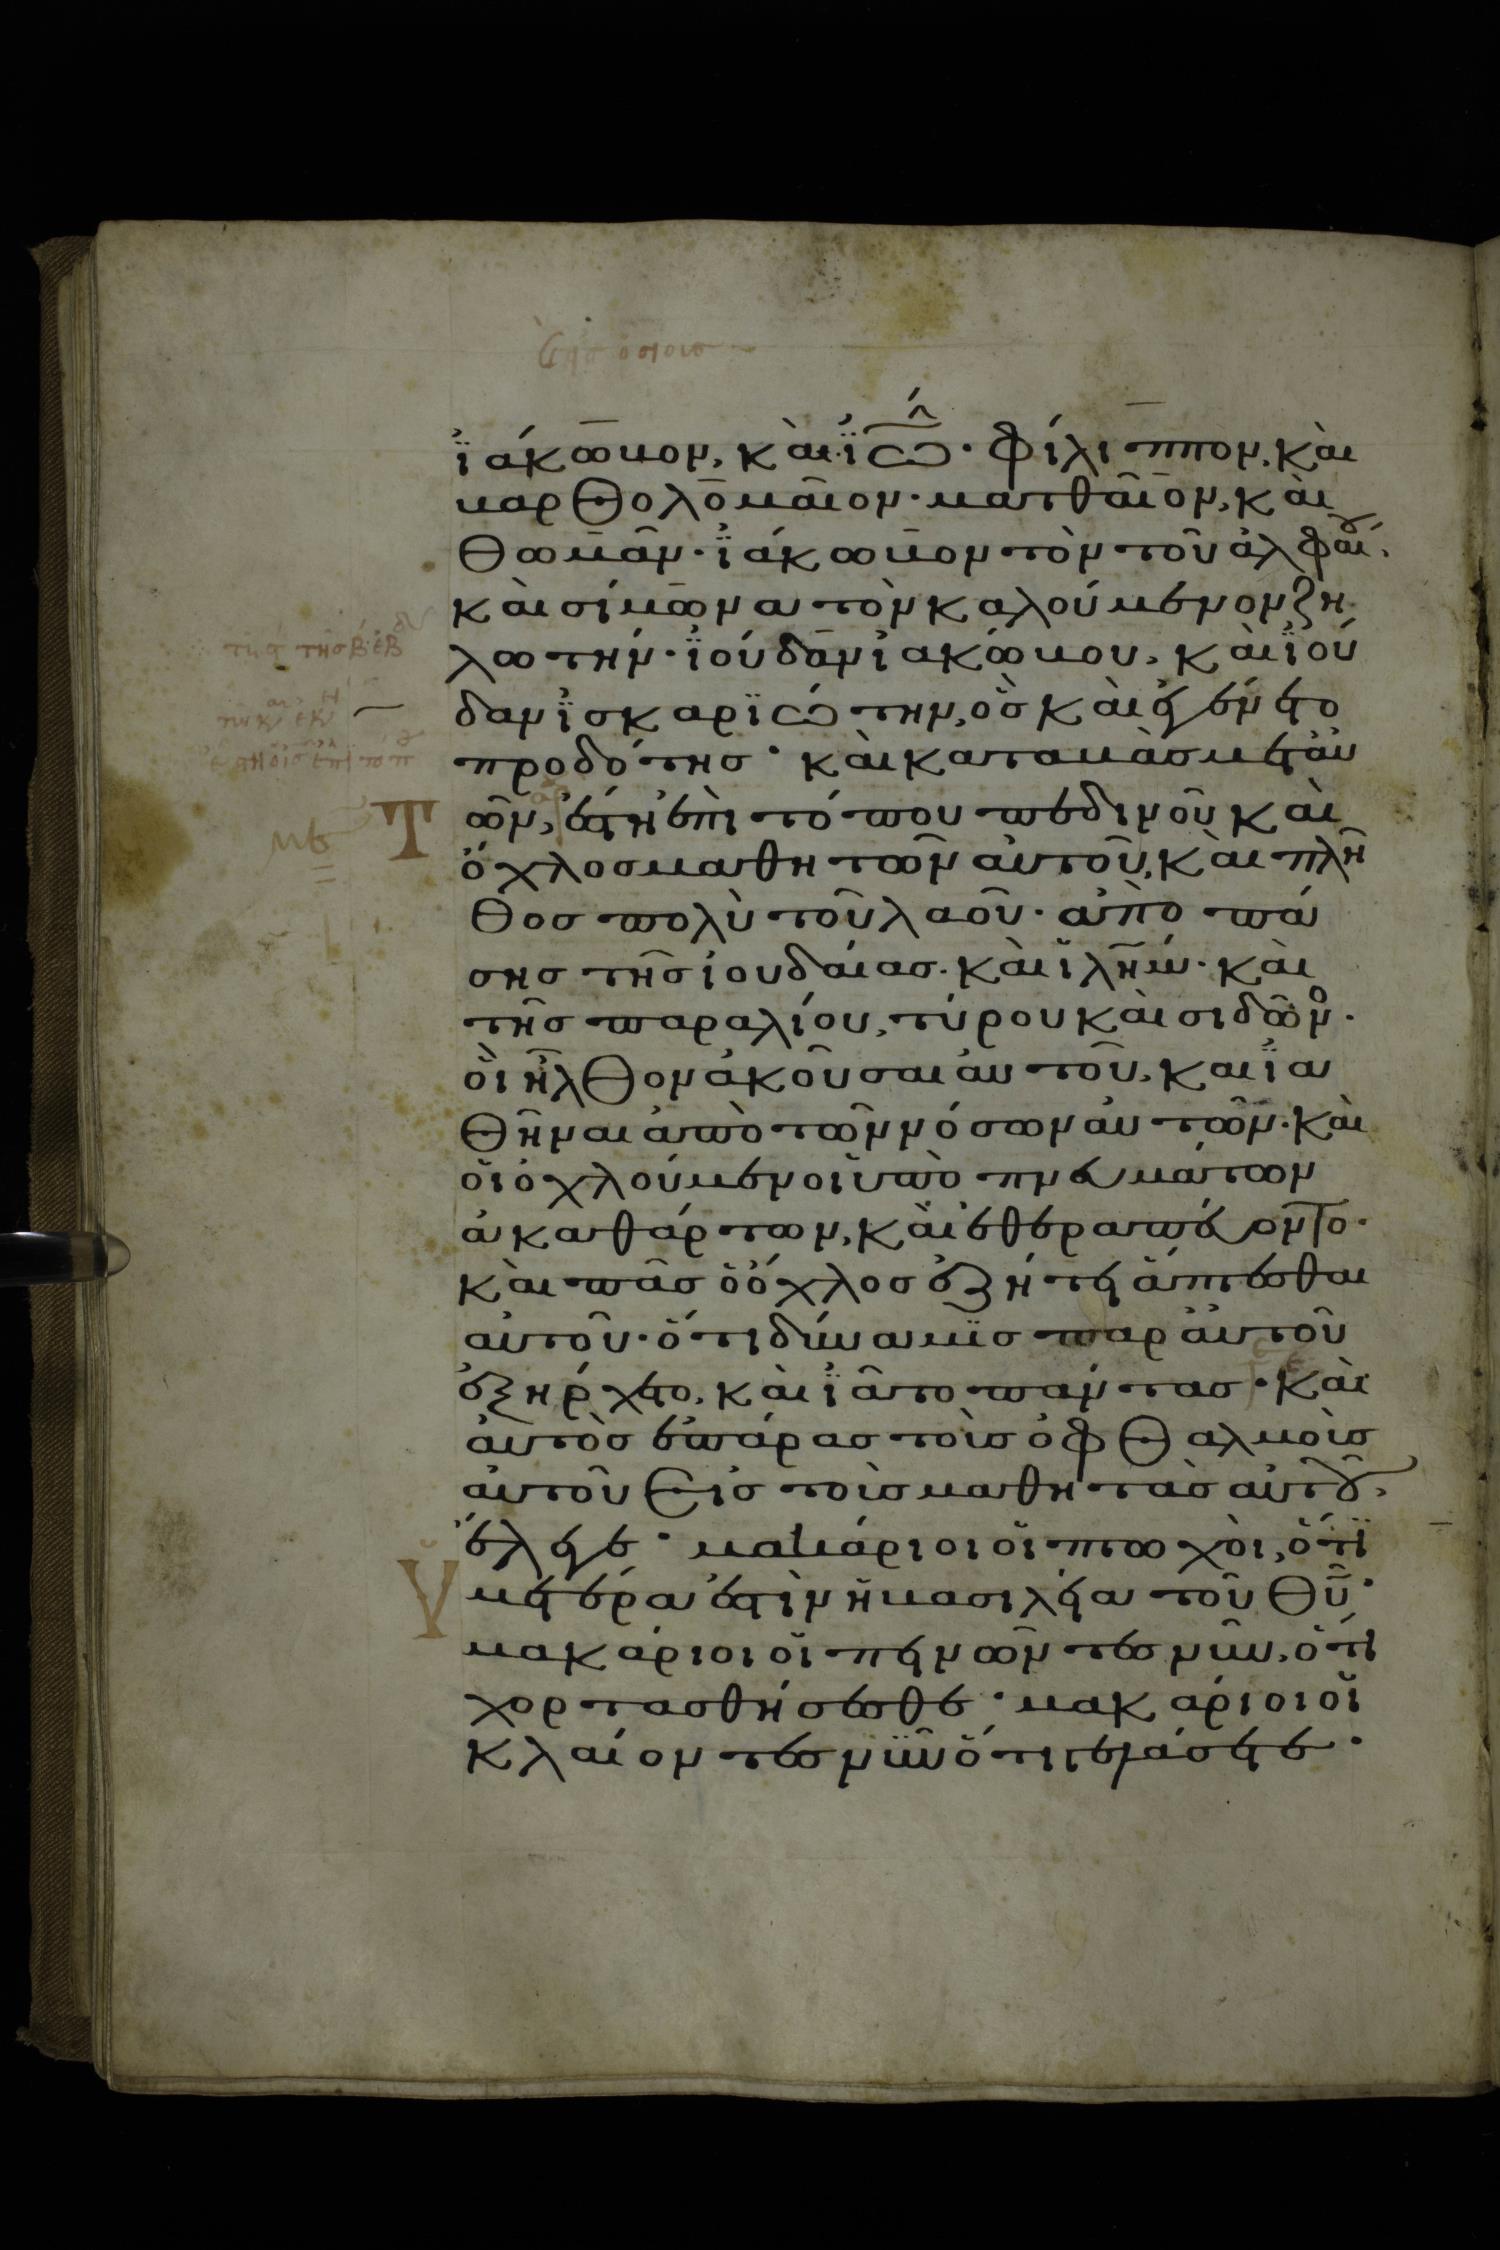 ἰάκωβον, καὶ ἰω · φίλιππον, καὶ
βαρθολομαῖον · ματθαῖον, καὶ
θωμᾶν · ἰάκωβον τὸν τοῦ ἀλφαίου,
καὶ σίμωνα τὸν καλούμενον ζη
λωτήν · ἰούδαν ἰακώβου, καὶ ἰού
δαν ἰσκαριώτην, ὃς καὶ ἐγένετο
προδότης · καὶ καταβὰς μετ αὐ
Τ ῶν, ἔστη ἐπὶ τόπου πεδινοῦ καὶ
ὄχλος μαθητῶν αὐτοῦ, καὶ πλῆ
θος πολὺ τοῦ λαοῦ · ἀπὸ πά
σης τῆς ἰουδαίας · καὶ ἰλημ · καὶ
τῆς παραλίου, τύρου καὶ σιδῶνο ·
οἳ ἦλθον ἀκοῦσαι αὐτοῦ, καὶ ἰα
θῆναι ἀπὸ τῶν νόσων αὐτῶν · καὶ
οἱ ὀχλούμενοι ὑπὸ πνευμάτων
ἀκαθάρτων, καὶ ἐθεραπεύοντο ·
καὶ πᾶς ὁ ὄχλος ἐζήτει ἅπτεσθαι
αὐτοῦ · ὅτι δύναμις παρ αὐτοῦ
ἐξήρχετο, καὶ ἰᾶτο πάντας · καὶ
αὐτὸς ἐπάρας τοὺς ὀφθαλμοὺς
αὐτοῦ εἰς τοὺς μαθητὰς αὐτοῦ,
ἔλεγε · μακάριοι οἱ πτωχοὶ, ὅτι
Ὑ μετέρα ἐστὶν ἡ βασιλεία τοῦ θυ ·
μακάριοι οἱ πεινῶντες νῦν, ὅτι
χορτασθήσεσθε · μακάριοι οἱ
κλαίοντες νῦν ὅτι γελάσετε ·